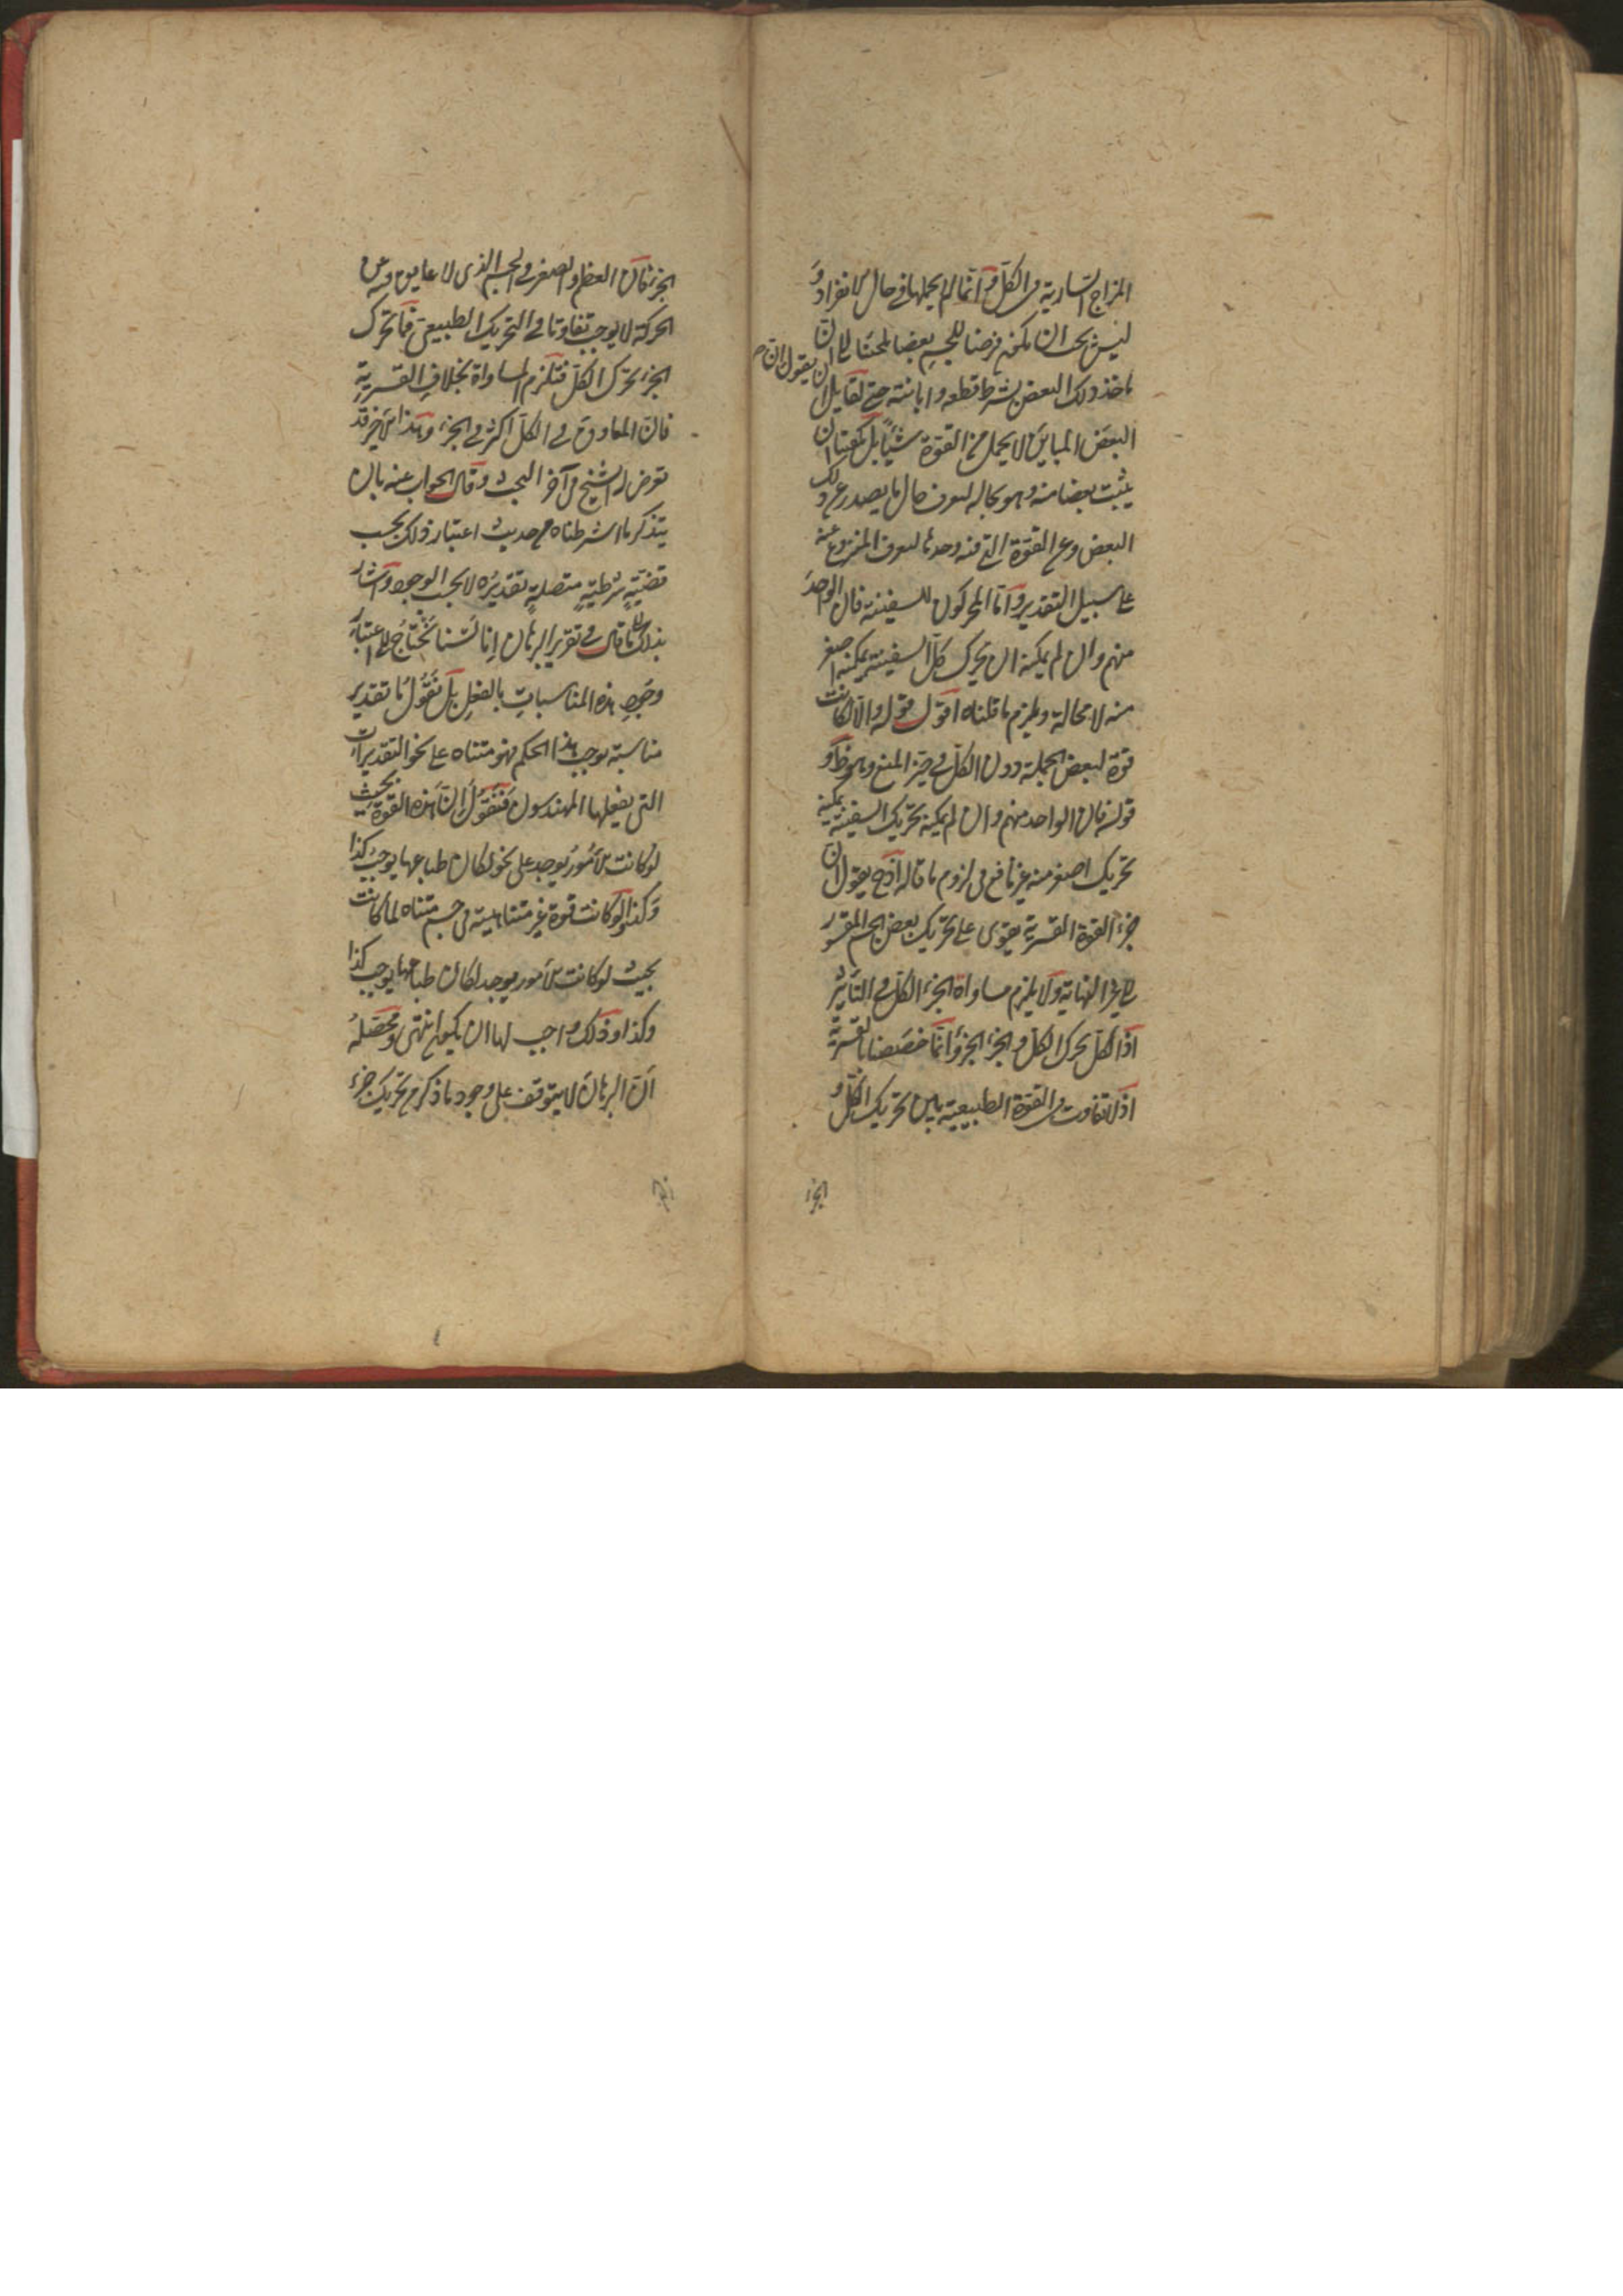 المزاج السارية في الكل وانما لم يحملها في حال الانفراد و
ليس يجب ان يكون فرضنا للجسم بعضا يلجئنا الى ان
ناخذ ذلك البعض بشرط قطعه وابانته حتى لقايل ان
ان يقول ان
البعض المباين لا يحمل من القوة شيئا بل يكفينا ان
يثبت بعضا منه وهو بحاله لنعرف حال ما يصدر عن ذلك
البعض وعن القوة التي فيه وحدها لنعرف المفروع عنه
على سبيل التقدير واما المحركون للسفينة فان الواحد
منهم وان لم يمكنه ان يحرك كل السفينة يمكنه اصغر
منه لا محالة ويلزم ما قلناه اقول قوله والا لكانت
قوة لبعض الجملة دون الكل في حيز المنع وهو ظ و
قوله فان الواحد منهم وان لم يمكنه تحريك السفينة يمكنه
تحريك اصغر منه غير نافع في لزوم ما قاله اذ ح يقول ان
جزء القوة القسرية يقوى على تحريك بعض الجسم المقسور
الى غير النهاية ولا يلزم مساواة الجزء الكل في التأثير
اذ الكل يحرك الكل والجزء الجزء وانما خصصنا بالقسرية
اذ لا تفاوت في القوة الطبيعية بين تحريك الكل و
الجزء
الجزء فان العظم والصغر في الجسم الذي لا معاوق فيه عن
الحركة لا يوجب تفاوتا في التحريك الطبيعي فما تحرك
الجزء تحرك الكل فتلزم المساواة بخلاف القسرية
فان المعاوق في الكل اكثر في الجزء وهذا الاخير قد
تعرض له الشيخ في آخر البحث وقال الجواب عنه بان
يتذكر ما اشرطناه من حديث اعتبار ذلك بحسب
قضية شرطية متصلة تقديره لا بحسب الوجود واشار
بذلك الى ما قال في تقرير البرهان انا لسنا نحتاج الى اعتبار
وجود هذه المناسبات بالفعل بل نقول ما تقدير
مناسبته يوجب هذا الحكم فهو متناه على نحو التقديرات
التي يفعلها المهندسون فنقول ان هذه القوة بحيث
لو كانت الامور يوجد على نحو لكان طباعها يوجب كذا
وكذا لو كانت قوة غير متناهية في جسم متناه لما كانت
بحيث لو كانت الامور يوجد لكان طباعها يوجب كذا
وكذا وذلك واجب لها ان يكون انتهى ومحصله
ان البرهان لا يتوقف على وجود ما ذكر من تحريك جزء